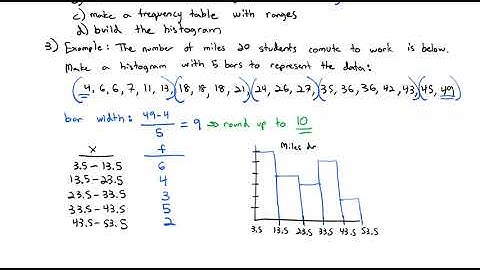 c) make a frequency table with ranges
d) build the histogram
3) Example: The number of miles 20 students comute to work is below.
Make a histogram with 5 bars to represent the data:
(4, 6, 6, 7, 11, 13,)(18, 18, 18, 21,)(24, 26, 27,)(35, 36, 36, 42, 43,)(45, 49)
bar width: 49-4/5 = 9 ⇒ round up to 10
x f
3.5-13.5 6
13.5-23.5 4
23.5-33.5 3
33.5-43.5 5
43.5-53.5 2
Miles dr
3.5 13.5 23.5 33.5 43.5 53.5